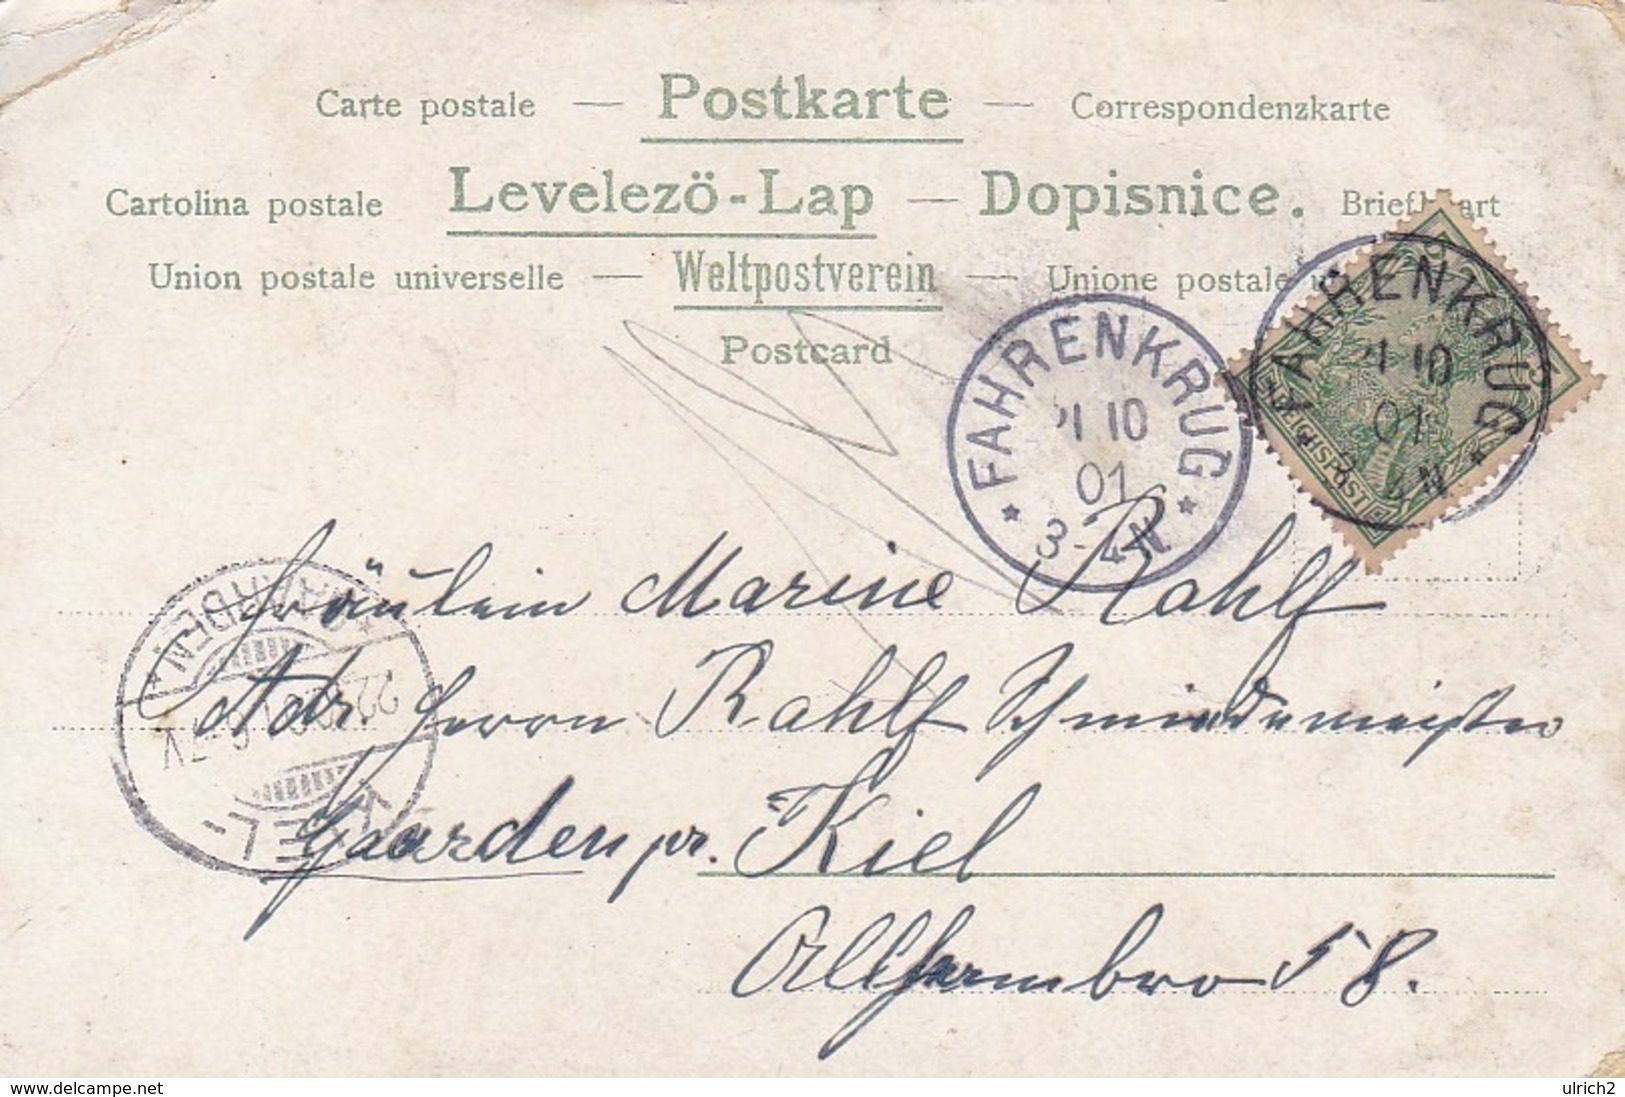 Carte postale — Postkarte — Correspondenzkarte
Cartolina postale Levelezö-Lap — Dopisnice. Briefkaart
Union postale universelle — Weltpostverein — Unione postale
Postcard
FAHRENKRUG
10
01
3-4N
FAHRENKRUG
10
01
3-4N
REICHSPOST
Fräulein Marine Rahlf
Adr Herrn Rahlf Schmiedemeister
Gaarden pr. Kiel
58.
KIEL-
GAARDEN
delcampe.net
ulrich2